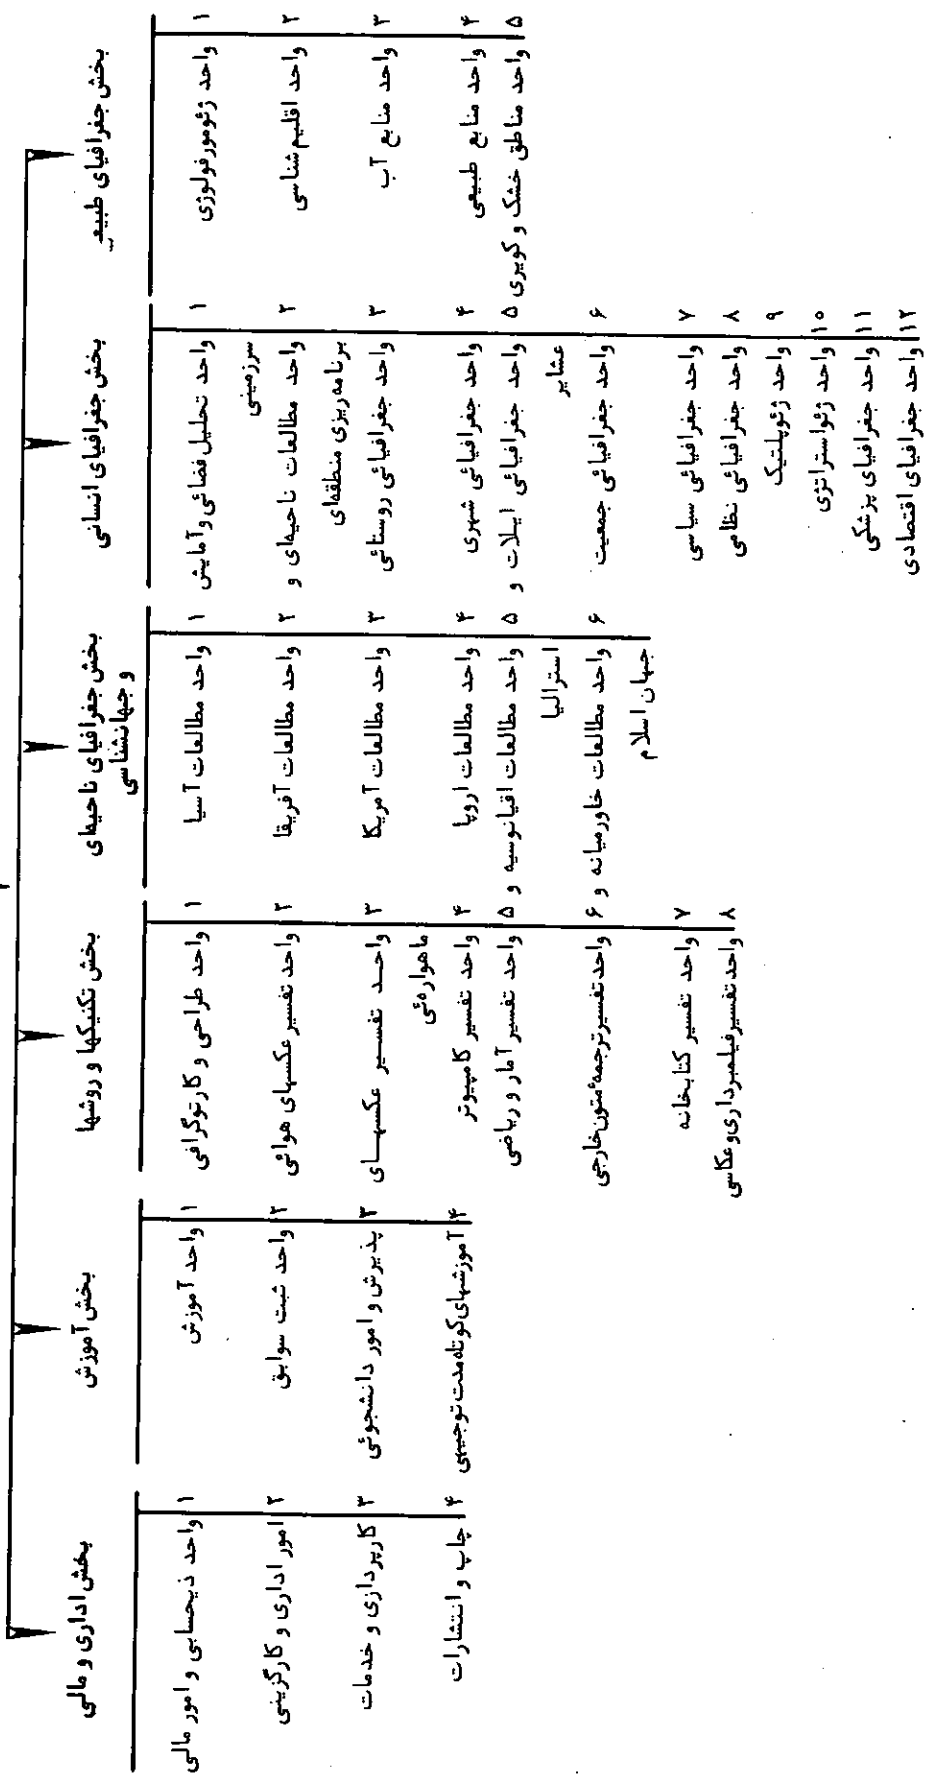 بخش جغرافیای طبیعی
۱ واحد ژئومورفولوژی
۲ واحد اقلیم‌شناسی
۳ واحد منابع آب
۴ واحد منابع طبیعی
۵ واحد مناطق خشک و کویری
بخش جغرافیای انسانی
۱ واحد تحلیل فضائی و آمایش
سرزمینی
۲ واحد مطالعات ناحیه‌ای و
برنامه‌ریزی منطقه‌ای
۳ واحد جغرافیائی روستائی
۴ واحد جغرافیائی شهری
۵ واحد جغرافیائی ایلات و
عشایر
۶ واحد جغرافیائی جمعیت
۷ واحد جغرافیائی سیاسی
۸ واحد جغرافیائی نظامی
۹ واحد ژئوپلتیک
۱۰ واحد ژئواستراتژی
۱۱ واحد جغرافیای پزشکی
۱۲ واحد جغرافیای اقتصادی
بخش جغرافیای ناحیه‌ای
و جهانشناسی
۱ واحد مطالعات آسیا
۲ واحد مطالعات آفریقا
۳ واحد مطالعات آمریکا
۴ واحد مطالعات اروپا
۵ واحد مطالعات اقیانوسیه و
استرالیا
۶ واحد مطالعات خاورمیانه و
جهان اسلام
بخش تکنیکها و روشها
۱ واحد طراحی و کارتوگرافی
۲ واحد تفسیر عکسهای هوائی
۳ واحد تفسیر عکسهای
ماهواره‌ئی
۴ واحد تفسیر کامپیوتر
۵ واحد تفسیر آمار و ریاضی
۶ واحد تفسیر ترجمهٔ متون خارجی
۷ واحد تفسیر کتابخانه
۸ واحد تفسیر فیلمبرداری و عکاسی
بخش آموزش
۱ واحد آموزش
۲ واحد ثبت سوابق
۳ پذیرش و امور دانشجوئی
۴ آموزشهای کوتاه مدت توجیهی
بخش اداری و مالی
۱ واحد ذیحسابی و امور مالی
۲ امور اداری و کارگزینی
۳ کارپردازی و خدمات
۴ چاپ و انتشارات